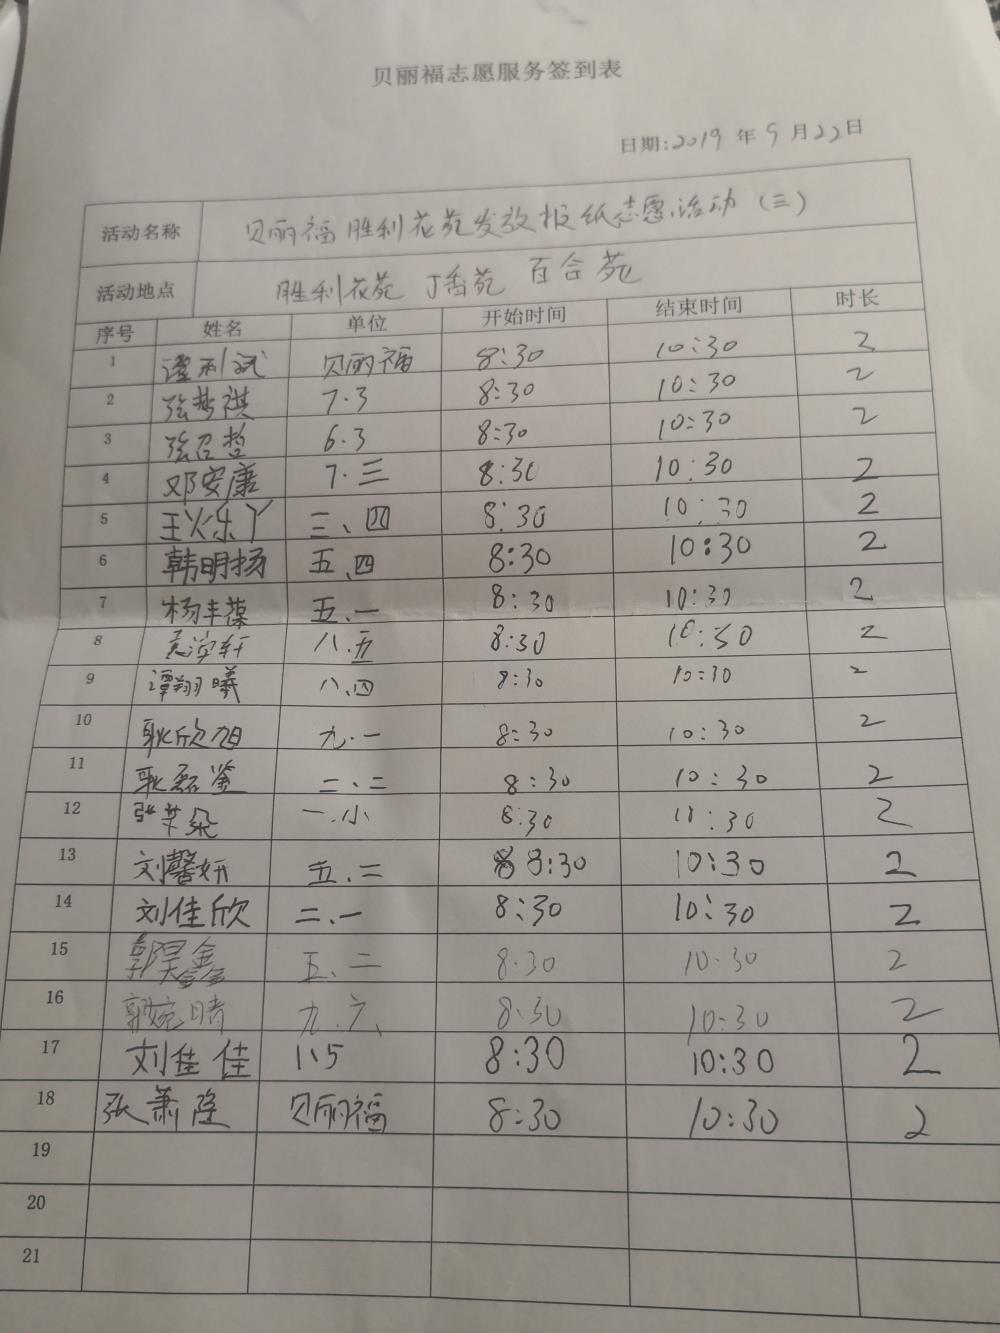 贝丽福志愿服务签到表
日期:2019年9月22日
活动名称 贝丽福胜利花苑发放报纸志愿活动(三)
活动地点 胜利花苑 丁香苑 百合苑
序号 姓名 单位 开始时间 结束时间 时长
1 谭利斌 贝丽福 8:30 10:30 2
2 张梦祺 7.3 8:30 10:30 2
3 张召哲 6.3 8:30 10:30 2
4 邓安康 7.三 8:30 10:30 2
5 王火乐丫 三、四 8:30 10:30 2
6 韩明扬 五、四 8:30 10:30 2
7 杨丰葆 五.一 8:30 10:30 2
8 轩 八.五 8:30 10:30 2
9 谭翔曦 八、四 8:30 10:30 2
10 耿欣旭 九.一 8:30 10:30 2
11 耿磊鉴 二、二 8:30 10:30 2
12 张艾朵 一.小 8:30 10:30 2
13 刘馨妍 五.二 8:30 10:30 2
14 刘佳欣 二.一 8:30 10:30 2
15 郭昊鑫 五、二 8:30 10:30 2
16 郭婉晴 九.六 8:30 10:30 2
17 刘佳佳 1:5 8:30 10:30 2
18 张萧隆 贝丽福 8:30 10:30 2
19
20
21